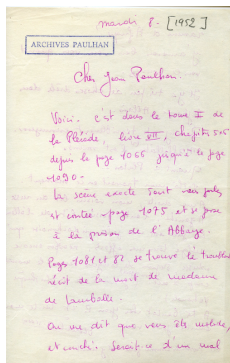 mardi 8. [1952]
ARCHIVES PAULHAN
Cher Jean Paulhan.
Voici. c'est dans le tome I de
la Pléiade, livre VII, chapitre
depuis la page 1066 jusqu'à la page
1090.
La scène exacte dont vous parlez
est contée page 1075 et se passe
à la prison de l'Abbaye.
Pages 1081 et 82 se trouve le troublant
récit de la mort de madame
de Lamballe.
On me dit que vous êtes malade,
et couché. Serait-ce d'un mal